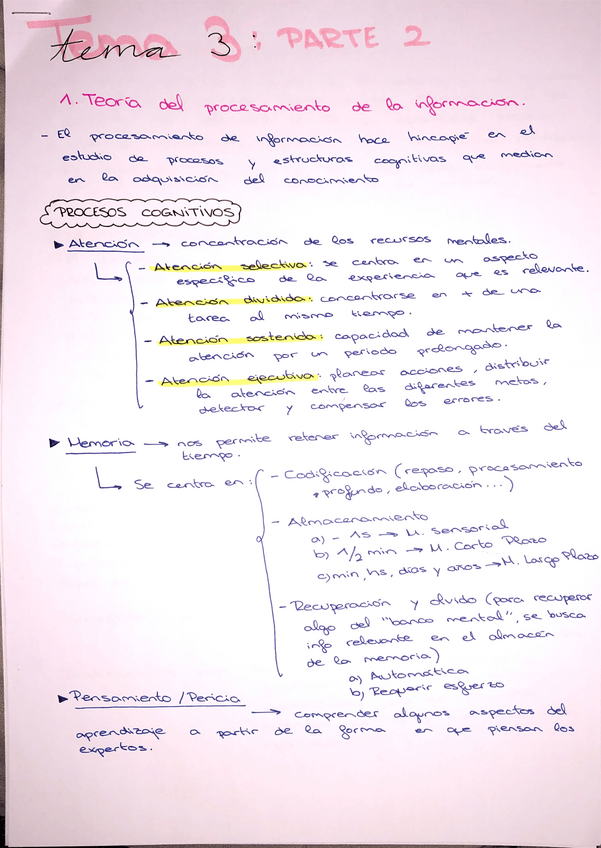 Tema 3: PARTE 2
1. Teoría del procesamiento de la información.
- El procesamiento de información hace hincapié en el
estudio de procesos y estructuras cognitivas que median
en la adquisición del conocimiento
PROCESOS COGNITIVOS
► Atención → concentración de los recursos mentales.
- Atención selectiva: se centra en un aspecto
específico de la experiencia que es relevante.
- Atención dividida: concentrarse en + de una
tarea al mismo tiempo.
- Atención sostenida: capacidad de mantener la
atención por un periodo prolongado.
- Atención ejecutiva: planear acciones, distribuir
la atención entre las diferentes metas,
detectar y compensar los errores.
► Memoria → nos permite retener información a través del
tiempo.
Se centra en:
- Codificación (repaso, procesamiento
profundo, elaboración...)
- Almacenamiento
a) - 1s → M. Sensorial
b) 1/2 min → M. Corto Plazo
c) min, hs, días y años → M. Largo Plazo
- Recuperación y olvido (para recuperar
algo del "banco mental", se busca
info relevante en el almacén
de la memoria)
a) Automática
b) Requerir esfuerzo
► Pensamiento / Pericia
→ comprender algunos aspectos del
aprendizaje a partir de la forma en que piensan los
expertos.